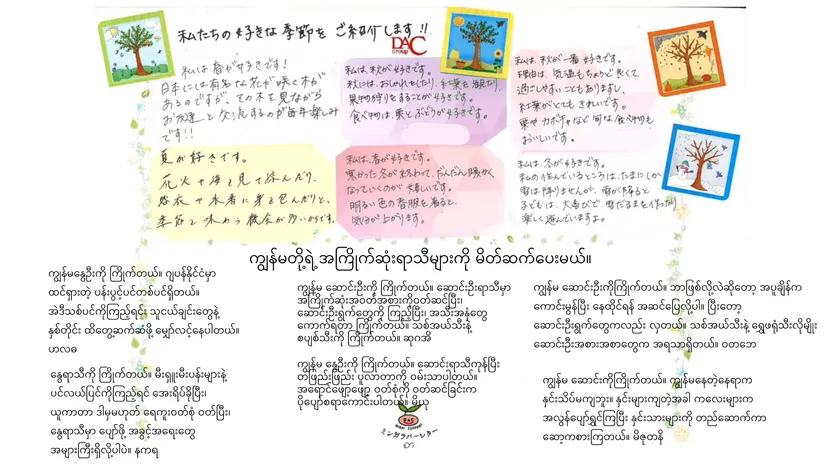 私たちの好きな季節をご紹介します!!
DAC
Group
私は春が好きです!
日本には有名な花が咲く木が
あるのですが、その木を見ながら
お友達と交流するのが毎年楽しみ
です!!
私は、秋が好きです。
秋には、おしゃれをしたり、紅葉を観たり、
果物狩りをすることが好きです。
食べ物は、栗とぶどうが好きです。
私は、秋が一番好きです。
理由は、気温もちょうど良くて
過ごしやすいこともありますし、
紅葉がとてもきれいです。
栗やカボチャなど旬な食べ物も
おいしいです。
夏が好きです。
花火や海を見て休んだり、
浴衣や水着に身を包んだりと、
季節を味わう機会が多いからです。
私は、春が好きです。
寒かった冬が終わって、だんだん暖かく
なっていくのが嬉しいです。
明るい色の春服を着ると、
気分が上がります。
私は、冬が好きです。
私の住んでいるところは、たまにしか
雪は降りませんが、雪が降ると
子どもは、大喜びで、雪だるまを作ったり
楽しく遊んでいますよ。
ကျွန်မတို့ရဲ့အကြိုက်ဆုံးရာသီများကို မိတ်ဆက်ပေးမယ်။
ကျွန်မနွေဦးကို ကြိုက်တယ်။ ဂျပန်နိုင်ငံမှာ
ထင်ရှားတဲ့ ပန်းပွင့်ပင်တစ်ပင်ရှိတယ်။
အဲဒီသစ်ပင်ကိုကြည့်ရင်း သူငယ်ချင်းတွေနဲ့
နှစ်တိုင်း ထိတွေ့ဆက်ဆံဖို့ မျှော်လင့်နေပါတယ်။
ဟလဓ
နွေရာသီကို ကြိုက်တယ်။ မီးရှူးမီးပန်းများနဲ့
ပင်လယ်ပြင်ကိုကြည့်ရင် အေးရိပ်ခိုပြီး၊
ယူကာတာ ဒါမှမဟုတ် ရေကူးဝတ်စုံ ဝတ်ပြီး၊
နွေရာသီမှာ ပျော်ဖို့ အခွင့်အရေးတွေ
အများကြီးရှိလို့ပါပဲ။ နကရ
ကျွန်မ ဆောင်းဦးကို ကြိုက်တယ်။ ဆောင်းဦးရာသီမှာ
အကြိုက်ဆုံးအဝတ်အစားကိုဝတ်ဆင်ပြီး၊
ဆောင်းဦးရွက်တွေကို ကြည့်ပြီး၊ အသီးအနှံတွေ
ကောက်ရတာ ကြိုက်တယ်။ သစ်အယ်သီးနဲ့
စပျစ်သီးကို ကြိုက်တယ်။ ဆုဂအိ
ကျွန်မ နွေဦးကို ကြိုက်တယ်။ ဆောင်းရာသီကုန်ပြီး
တဖြည်းဖြည်း ပူလာတာကို ဝမ်းသာပါတယ်။
အရောင်ဖျော့ဖျော့ ဝတ်စုံကို ဝတ်ဆင်ခြင်းက
ပိုပျော်စရာကောင်းပါတယ်။ မိယု
ကျွန်မ ဆောင်းဦးကိုကြိုက်တယ်။ ဘာဖြစ်လို့လဲဆိုတော့ အပူချိန်က
ကောင်းမွန်ပြီး နေထိုင်ရန် အဆင်ပြေလို့ပါ။ ပြီးတော့
ဆောင်းဦးရွက်တွေကလည်း လှတယ်။ သစ်အယ်သီးနဲ့ ရွှေဖရုံသီးလိုမျိုး
ဆောင်းဦးအစားအစာတွေက အရသာရှိတယ်။ ဝတဘေ
ကျွန်မ ဆောင်းကိုကြိုက်တယ်။ ကျွန်မနေတဲ့နေရာက
နှင်းသိပ်မကျဘူး။ နှင်းများကျတဲ့အခါ ကလေးများက
အလွန်ပျော်ရွှင်ကြပြီး နှင်းသားများကို တည်ဆောက်ကာ
ဆော့ကစားကြတယ်။ မိဇုတနိ
ミンガラバーレター